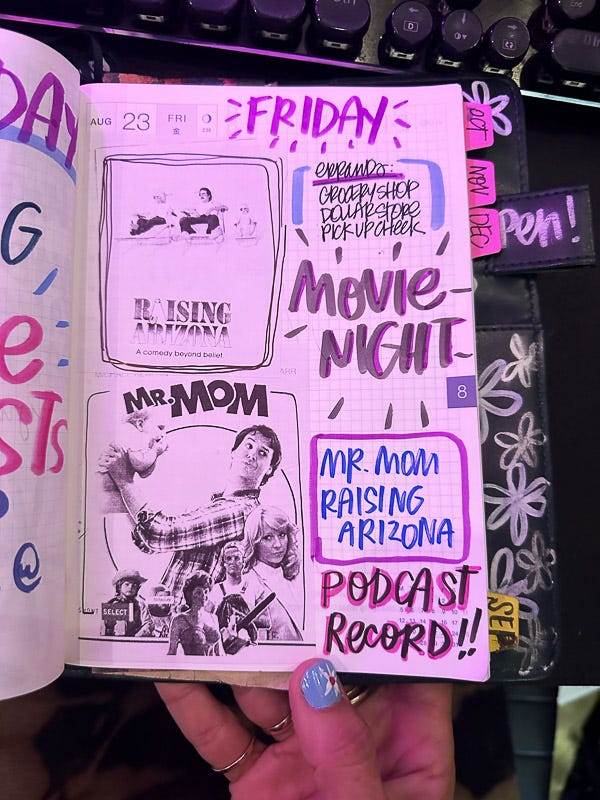 DAY
G,
e
STS
@
AUG 23 FRI
金
236
FRIDAY
ERRANDS:
GROCERY SHOP
DOLLAR STORE
PICK UP CHECK
RAISING
ARIZONA
A comedy beyond belief
MOVIE
NIGHT
8
MR. MOM
SELECT
MR. MOM
RAISING
ARIZONA
PODCAST
RECORD!!
OCT
NOV
DEC
Pen!
SEP
D
Ctrl
End